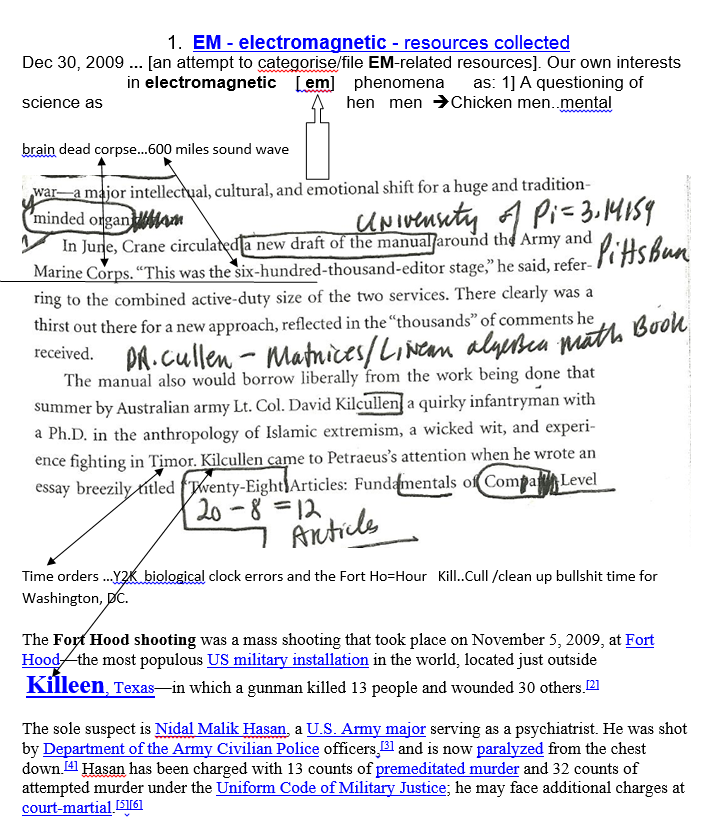 1. EM - electromagnetic - resources collected
Dec 30, 2009 ... [an attempt to categorise/file EM-related resources]. Our own interests
in electromagnetic [ em] phenomena as: 1] A questioning of
science as hen men ➔Chicken men..mental
brain dead corpse...600 miles sound wave
war—a major intellectual, cultural, and emotional shift for a huge and tradition-
minded organi
University of Pi = 3.14159
In June, Crane circulated a new draft of the manual around the Army and
PittsBun
Marine Corps. “This was the six-hundred-thousand-editor stage,” he said, refer-
ring to the combined active-duty size of the two services. There clearly was a
thirst out there for a new approach, reflected in the “thousands” of comments he
received.
DR. Cullen - Matrices/Linear algebra math Book
The manual also would borrow liberally from the work being done that
summer by Australian army Lt. Col. David Kilcullen, a quirky infantryman with
a Ph.D. in the anthropology of Islamic extremism, a wicked wit, and experi-
ence fighting in Timor. Kilcullen came to Petraeus’s attention when he wrote an
essay breezily titled “Twenty-Eight Articles: Fundamentals of Compa Level
20 - 8 = 12
Articles
Time orders ...Y2K biological clock errors and the Fort Ho=Hour Kill..Cull /clean up bullshit time for
Washington, DC.
The Fort Hood shooting was a mass shooting that took place on November 5, 2009, at Fort
Hood—the most populous US military installation in the world, located just outside
Killeen, Texas—in which a gunman killed 13 people and wounded 30 others.[2]
The sole suspect is Nidal Malik Hasan, a U.S. Army major serving as a psychiatrist. He was shot
by Department of the Army Civilian Police officers,[3] and is now paralyzed from the chest
down.[4] Hasan has been charged with 13 counts of premeditated murder and 32 counts of
attempted murder under the Uniform Code of Military Justice; he may face additional charges at
court-martial.[5][6]